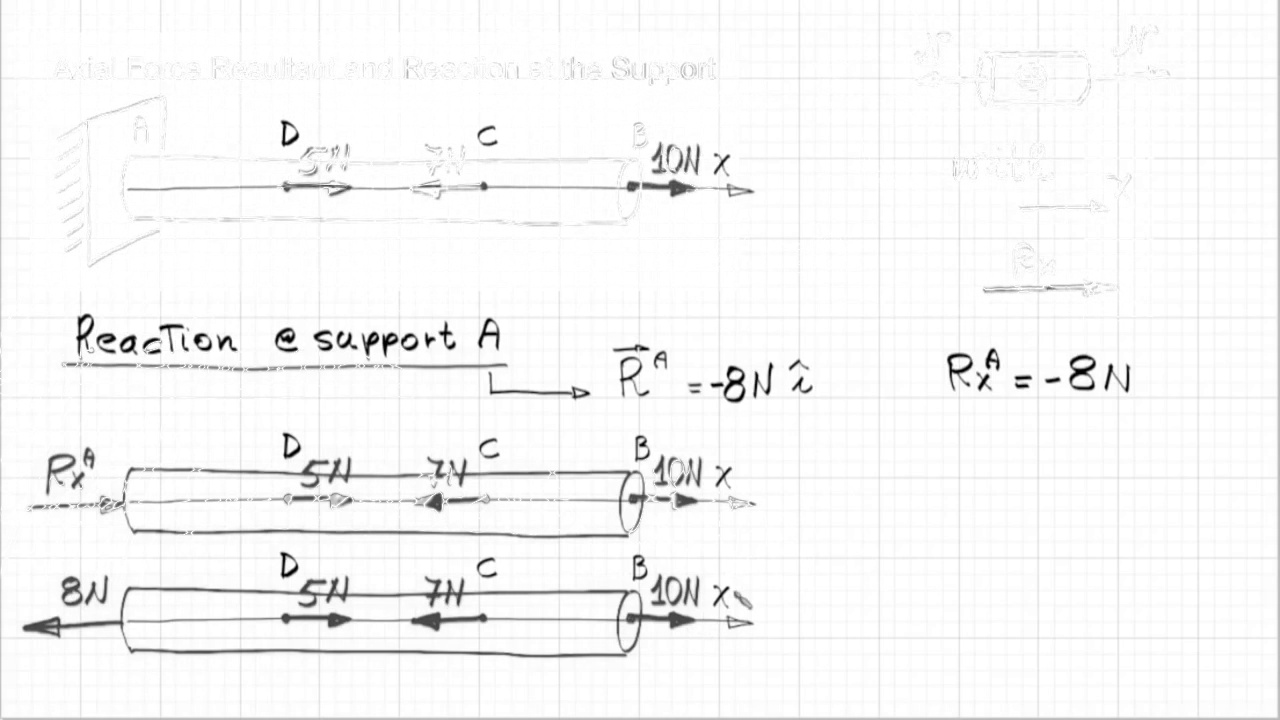 Axial Force Resultant and Reaction at the Support
N N
A D 5N 7N C B 10N x
write
x
Rx
Reaction @ support A
R⃗ᴬ = -8N î
Rxᴬ = -8N
Rxᴬ D 5N 7N C B 10N x
8N D 5N 7N C B 10N x